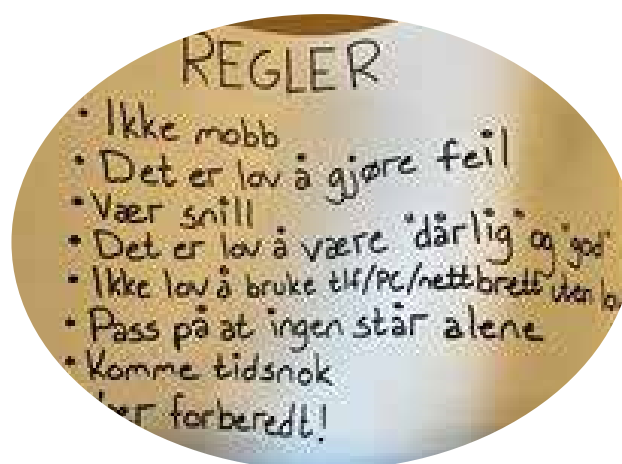 REGLER
• Ikke mobb
• Det er lov å gjøre feil
• Vær snill
• Det er lov å være "dårlig" og "god"
• Ikke lov å bruke tlf/PC/nettbrett uten
• Pass på at ingen står alene
• Komme tidsnok
forberedt!